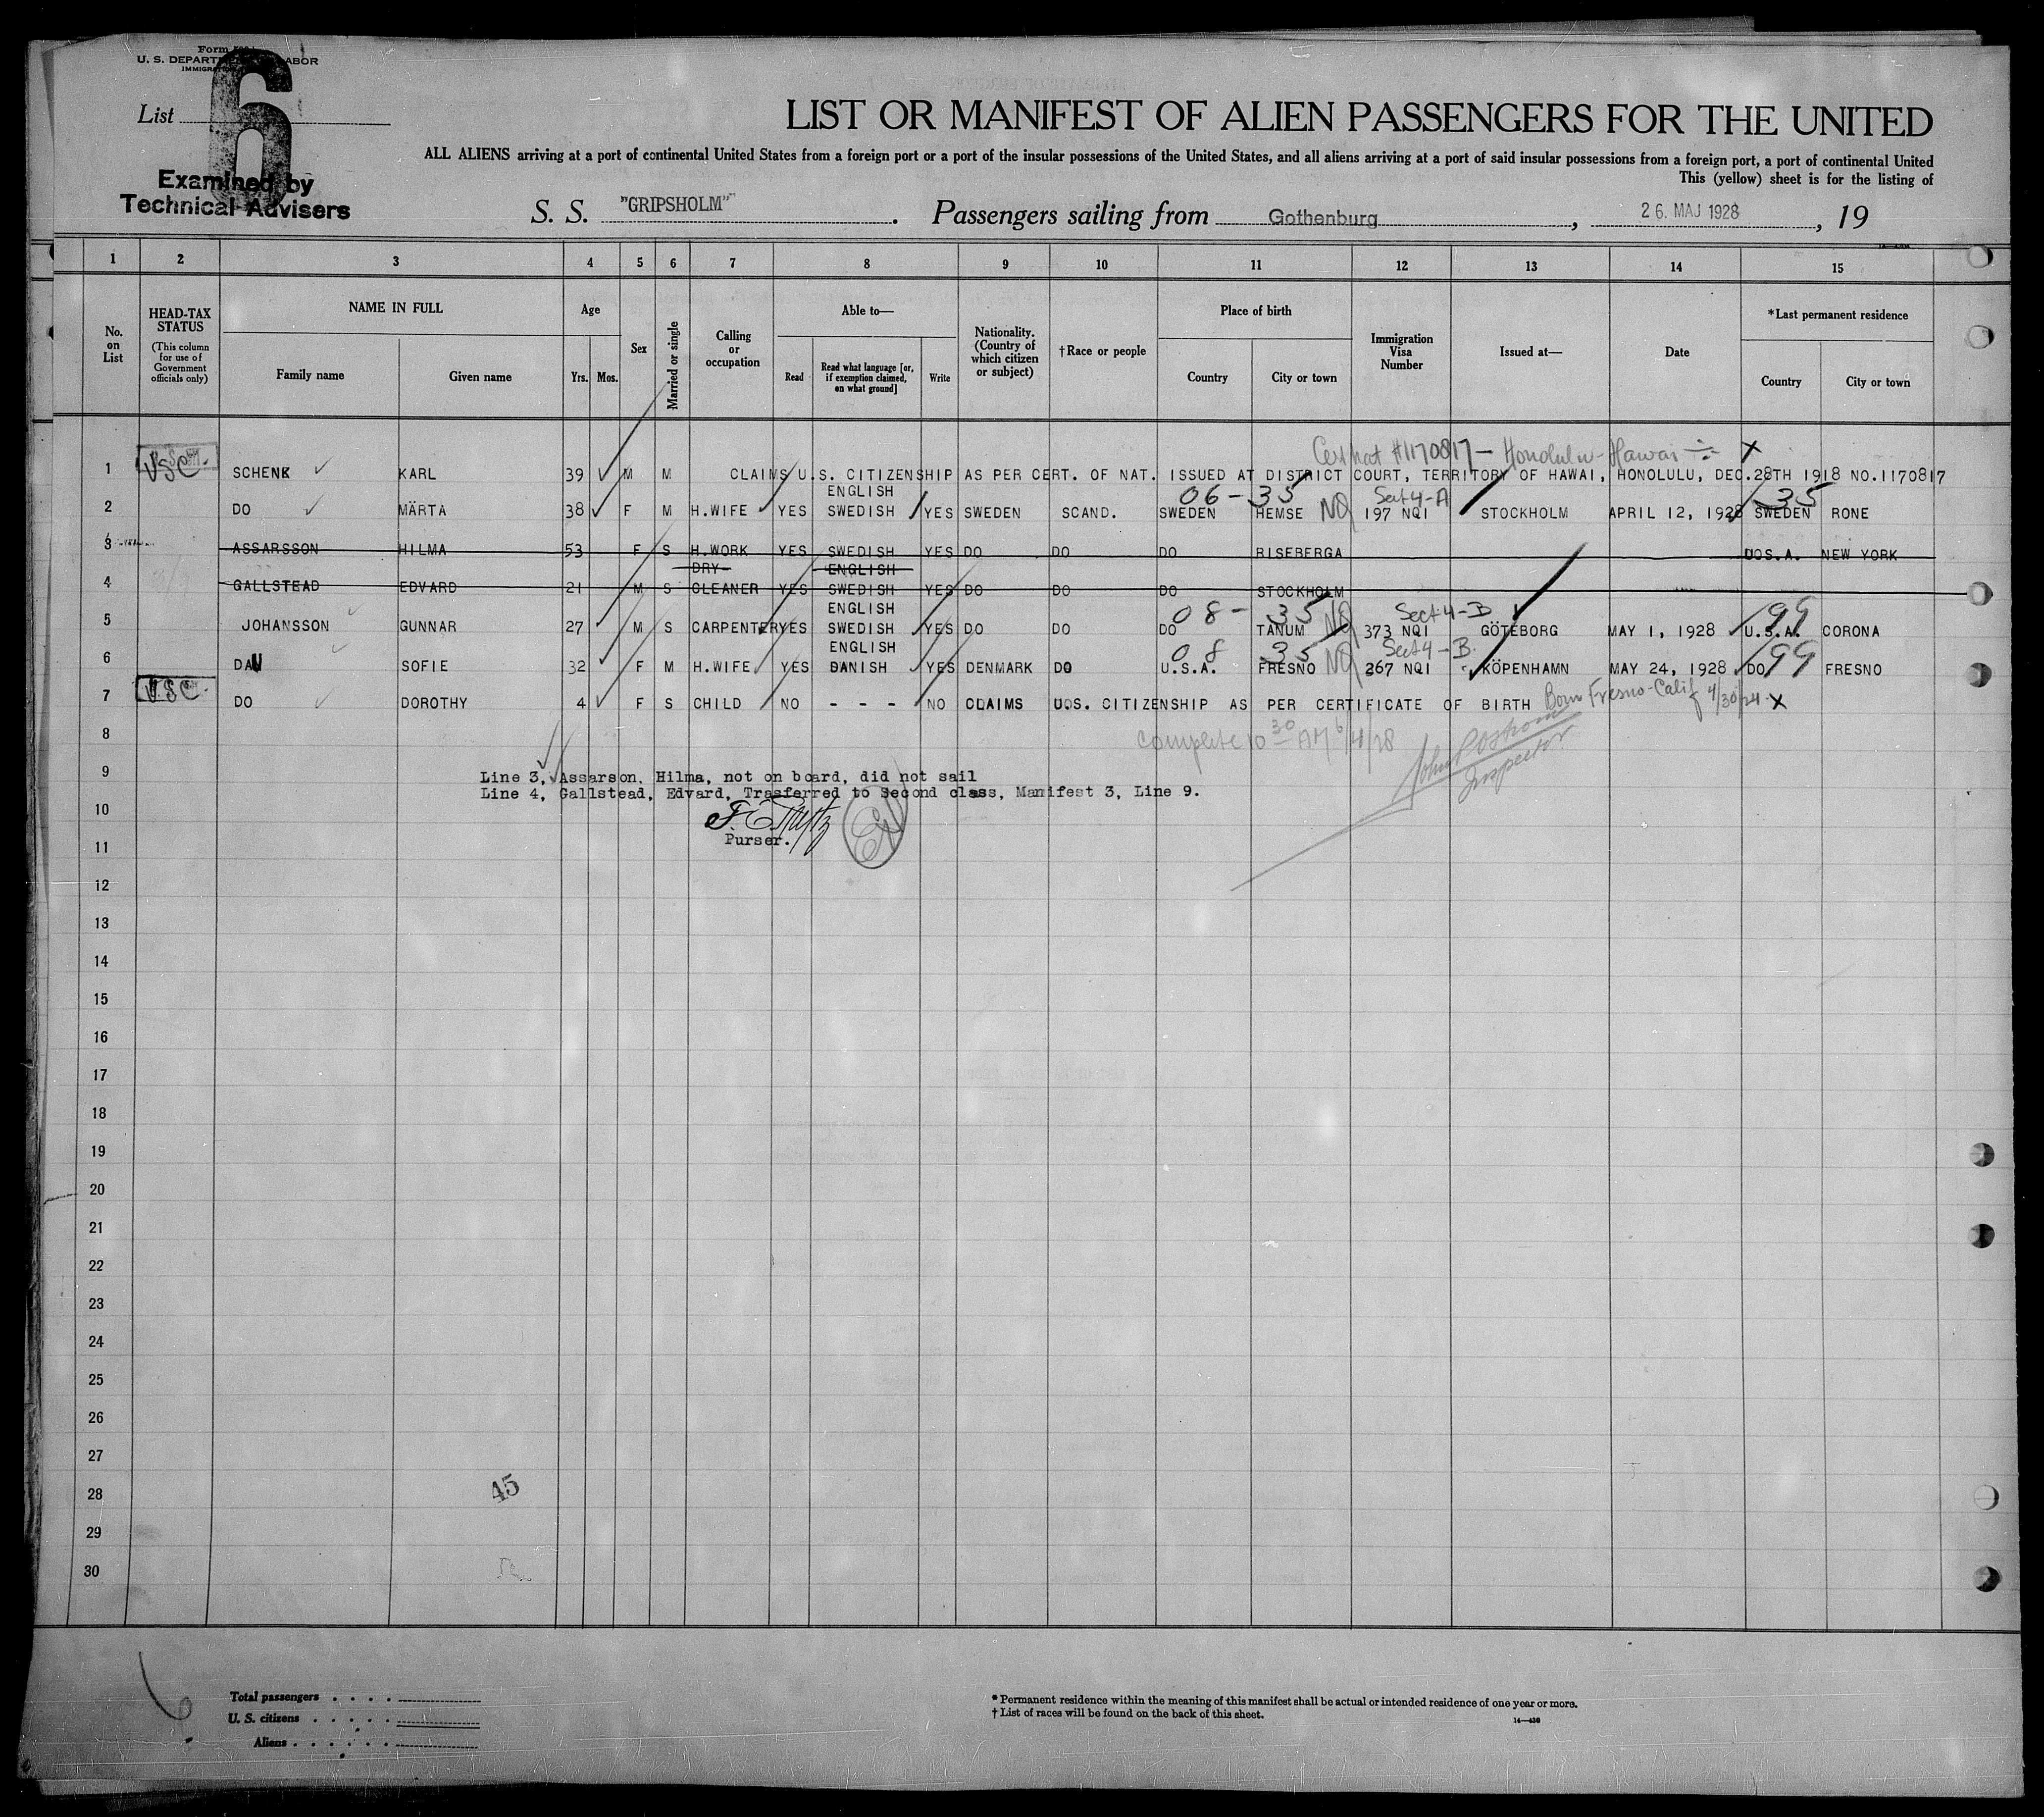 Form
U. S. DEPARTMENT OF LABOR
List 6
Examined by
Technical Advisers
LIST OR MANIFEST OF ALIEN PASSENGERS FOR THE UNITED
ALL ALIENS arriving at a port of continental United States from a foreign port or a port of the insular possessions of the United States, and all aliens arriving at a port of said insular possessions from a foreign port, a port of continental United
This (yellow) sheet is for the listing of
S. S. "GRIPSHOLM" . Passengers sailing from Gothenburg , 26. MAJ 1928 , 19
1 2 3 4 5 6 7 8 9 10 11 12 13 14 15
No. on List
HEAD-TAX STATUS
(This column for use of Government officials only)
NAME IN FULL
Family name Given name
Age
Yrs. Mos.
Sex
Married or single
Calling or occupation
Able to—
Read Read what language [or, if exemption claimed, on what ground] Write
Nationality. (Country of which citizen or subject)
†Race or people
Place of birth
Country City or town
Immigration Visa Number
Issued at—
Date
*Last permanent residence
Country City or town
Cert nat #1170817 — Honolulu - Hawai X
1 USC. SCHENK KARL 39 M M CLAIMS U.S. CITIZENSHIP AS PER CERT. OF NAT. ISSUED AT DISTRICT COURT, TERRITORY OF HAWAI, HONOLULU, DEC.28TH 1918 NO.1170817
ENGLISH 06-35 Sect 4-A 35
2 DO MÄRTA 38 F M H.WIFE YES SWEDISH YES SWEDEN SCAND. SWEDEN HEMSE NQ 197 NQI STOCKHOLM APRIL 12, 1928 SWEDEN RONE
3 ASSARSSON HILMA 53 F S H.WORK YES SWEDISH YES DO DO DO RISEBERGA UOS.A. NEW YORK
DRY- ENGLISH
4 GALLSTEAD EDVARD 21 M S CLEANER YES SWEDISH YES DO DO DO STOCKHOLM
ENGLISH 08-35 Sect 4-B 99
5 JOHANSSON GUNNAR 27 M S CARPENTER YES SWEDISH YES DO DO DO TANUM NQ 373 NQI GÖTEBORG MAY 1, 1928 U.S.A. CORONA
ENGLISH 08 35 Sect 4-B. 99
6 DAU SOFIE 32 F M H.WIFE YES DANISH YES DENMARK DO U.S.A. FRESNO NQ 267 NQI KÖPENHAMN MAY 24, 1928 DO FRESNO
7 USC. DO DOROTHY 4 F S CHILD NO - - - NO CLAIMS UOS. CITIZENSHIP AS PER CERTIFICATE OF BIRTH Born Fresno-Calif 4/30/24 X
8 Complete 10 30 AM 6/4/28
Inspector
9
Line 3, Assarson, Hilma, not on board, did not sail
Line 4, Gallstead, Edvard, Trasferred to Second class, Manifest 3, Line 9.
10
Purser.
11
12
13
14
15
16
17
18
19
20
21
22
23
24
25
26
27
28
45
29
30
6
Total passengers . . . .
U. S. citizens . . . . .
Aliens . . . . . .
* Permanent residence within the meaning of this manifest shall be actual or intended residence of one year or more.
† List of races will be found on the back of this sheet.
14—430